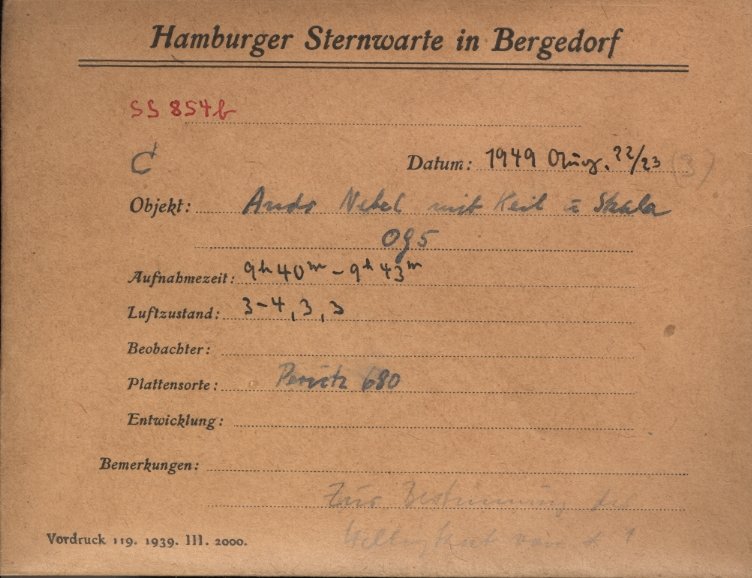 Hamburger Sternwarte in Bergedorf
SS 854b
C
Datum: 1949 Aug. 22/23 (3)
Objekt: Andr Nebel mit Keil = Skala
Og5
Aufnahmezeit: 9h 40m - 9h 43m
Luftzustand: 3-4, 3, 3
Beobachter:
Plattensorte: Perutz 680
Entwicklung:
Bemerkungen:
Zur Bestimmung der
von * 1
Vordruck 119. 1939. III. 2000.